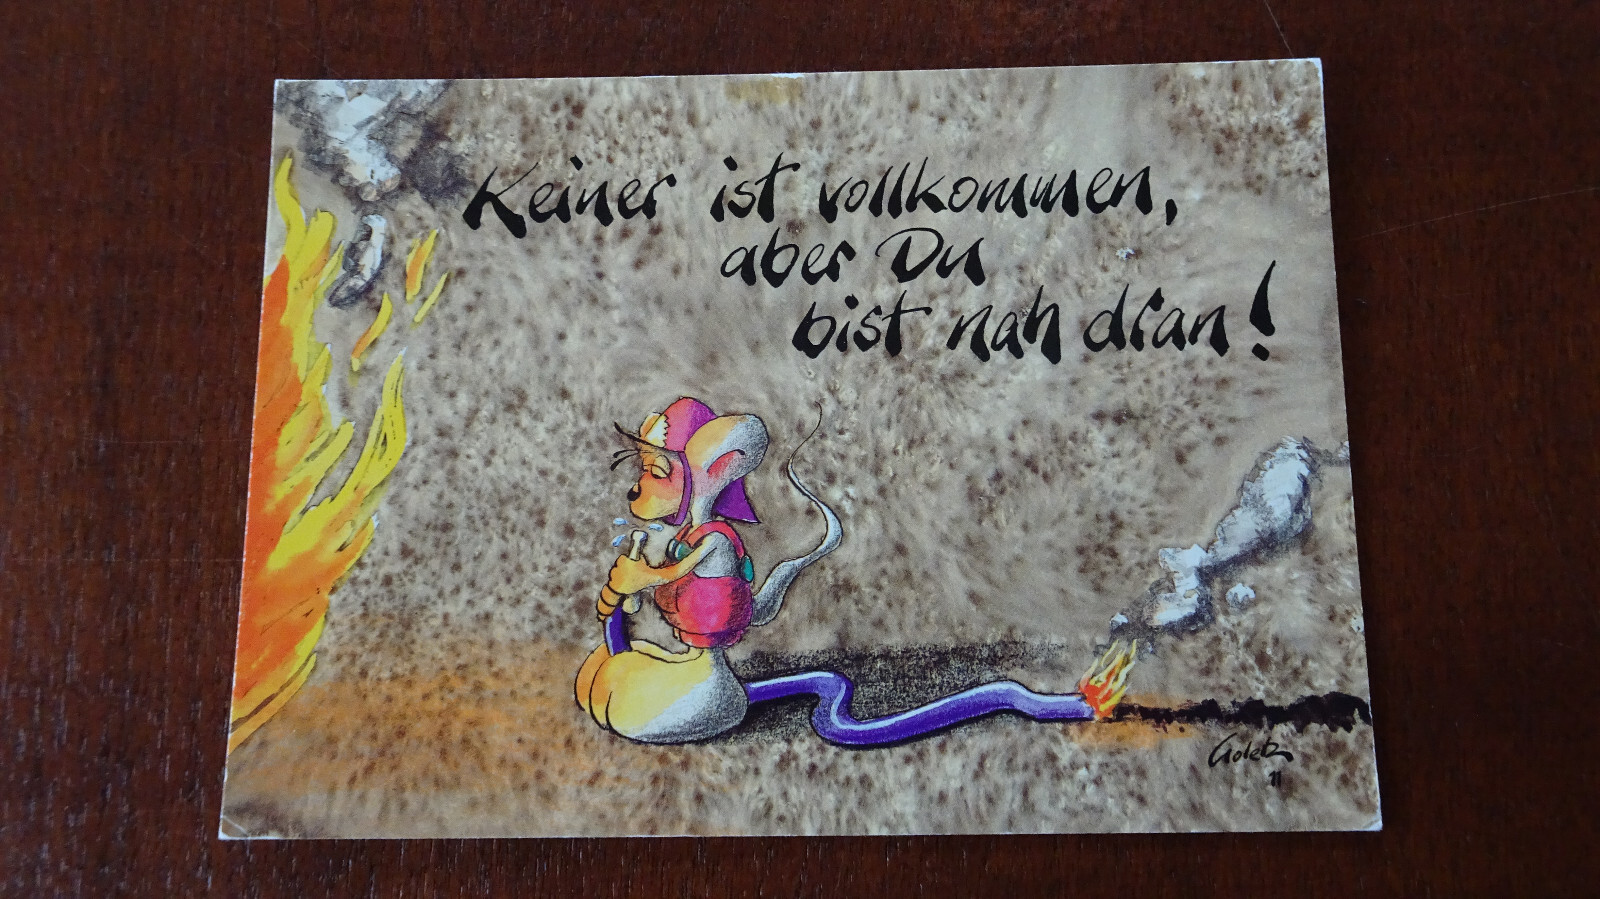 Keiner ist vollkommen,
aber Du
bist nah dran!
Goletz